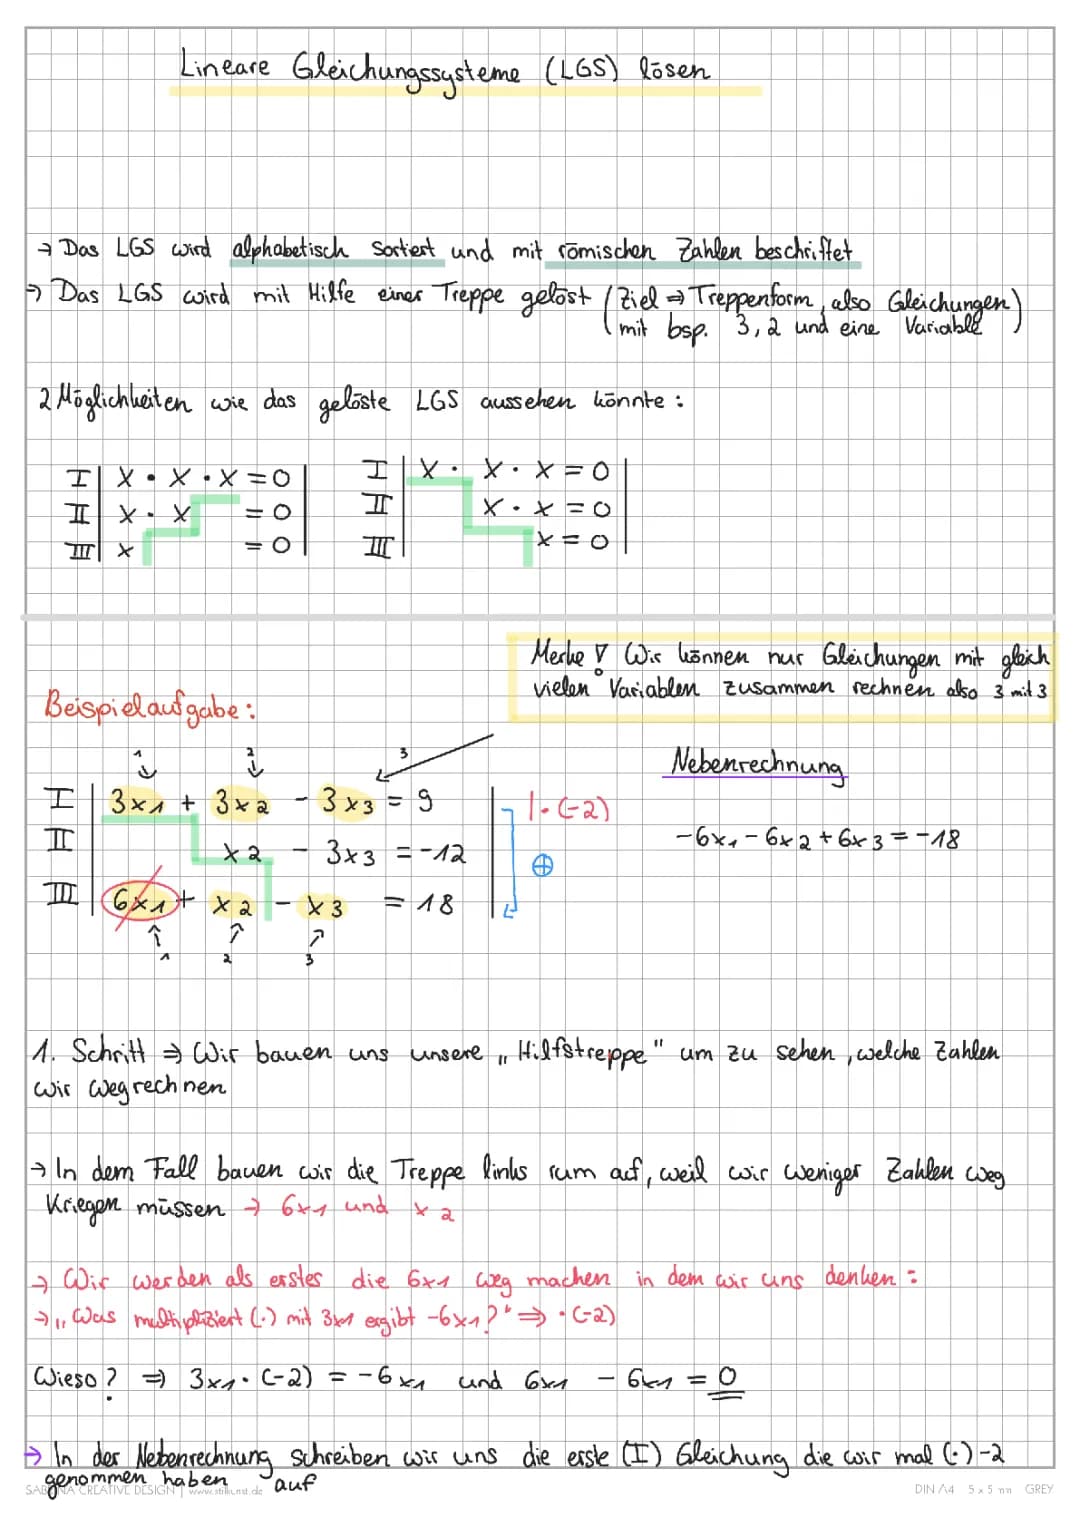 Lineare Gleichungssysteme (LGS) lösen
→ Das LGS wird alphabetisch sortiert und mit römischen Zahlen beschriftet
→ Das LGS wird mit Hilfe einer Treppe gelöst (Ziel ⇒ Treppenform, also Gleichungen
mit bsp. 3, 2 und eine Variable)
2 Möglichkeiten wie das gelöste LGS aussehen könnte :
I | X • X • X = 0 |
II | X • X = 0 |
III | X = 0 |
I | X • X • X = 0 |
II | X • X = 0 |
III | X = 0 |
Merke ! Wir können nur Gleichungen mit gleich
vielen Variablen zusammen rechnen also 3 mit 3
Beispielaufgabe :
Nebenrechnung
1 2 3
I | 3x1 + 3x2 - 3x3 = 9 | |·(-2)
II | x2 - 3x3 = -12 | ⊕
III | 6x1 + x2 - x3 = 18 |
1 2 3
-6x1 - 6x2 + 6x3 = -18
1. Schritt ⇒ Wir bauen uns unsere „Hilfstreppe" um zu sehen, welche Zahlen
wir wegrechnen
→ In dem Fall bauen wir die Treppe links rum auf, weil wir weniger Zahlen weg
Kriegen müssen → 6x1 und x2
→ Wir werden als erstes die 6x1 weg machen in dem wir uns denken :
→ „Was multipliziert (·) mit 3x1 ergibt -6x1?" ⇒ ·(-2)
Wieso? ⇒ 3x1 · (-2) = -6x1 und 6x1 - 6x1 = 0
→ In der Nebenrechnung schreiben wir uns die erste (I) Gleichung die wir mal (·) -2
genommen haben auf
SABRINA CREATIVE DESIGN | www.stilkunst.de
DIN A4 5 x 5 mm GREY